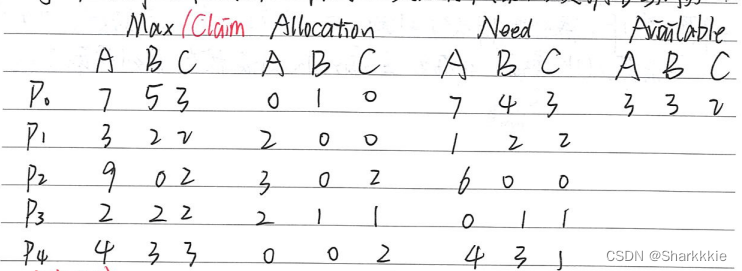 Max/Claim Allocation Need Available
A B C A B C A B C A B C
P0 7 5 3 0 1 0 7 4 3 3 3 2
P1 3 2 2 2 0 0 1 2 2
P2 9 0 2 3 0 2 6 0 0
P3 2 2 2 2 1 1 0 1 1
P4 4 3 3 0 0 2 4 3 1
CSDN @Sharkkkie